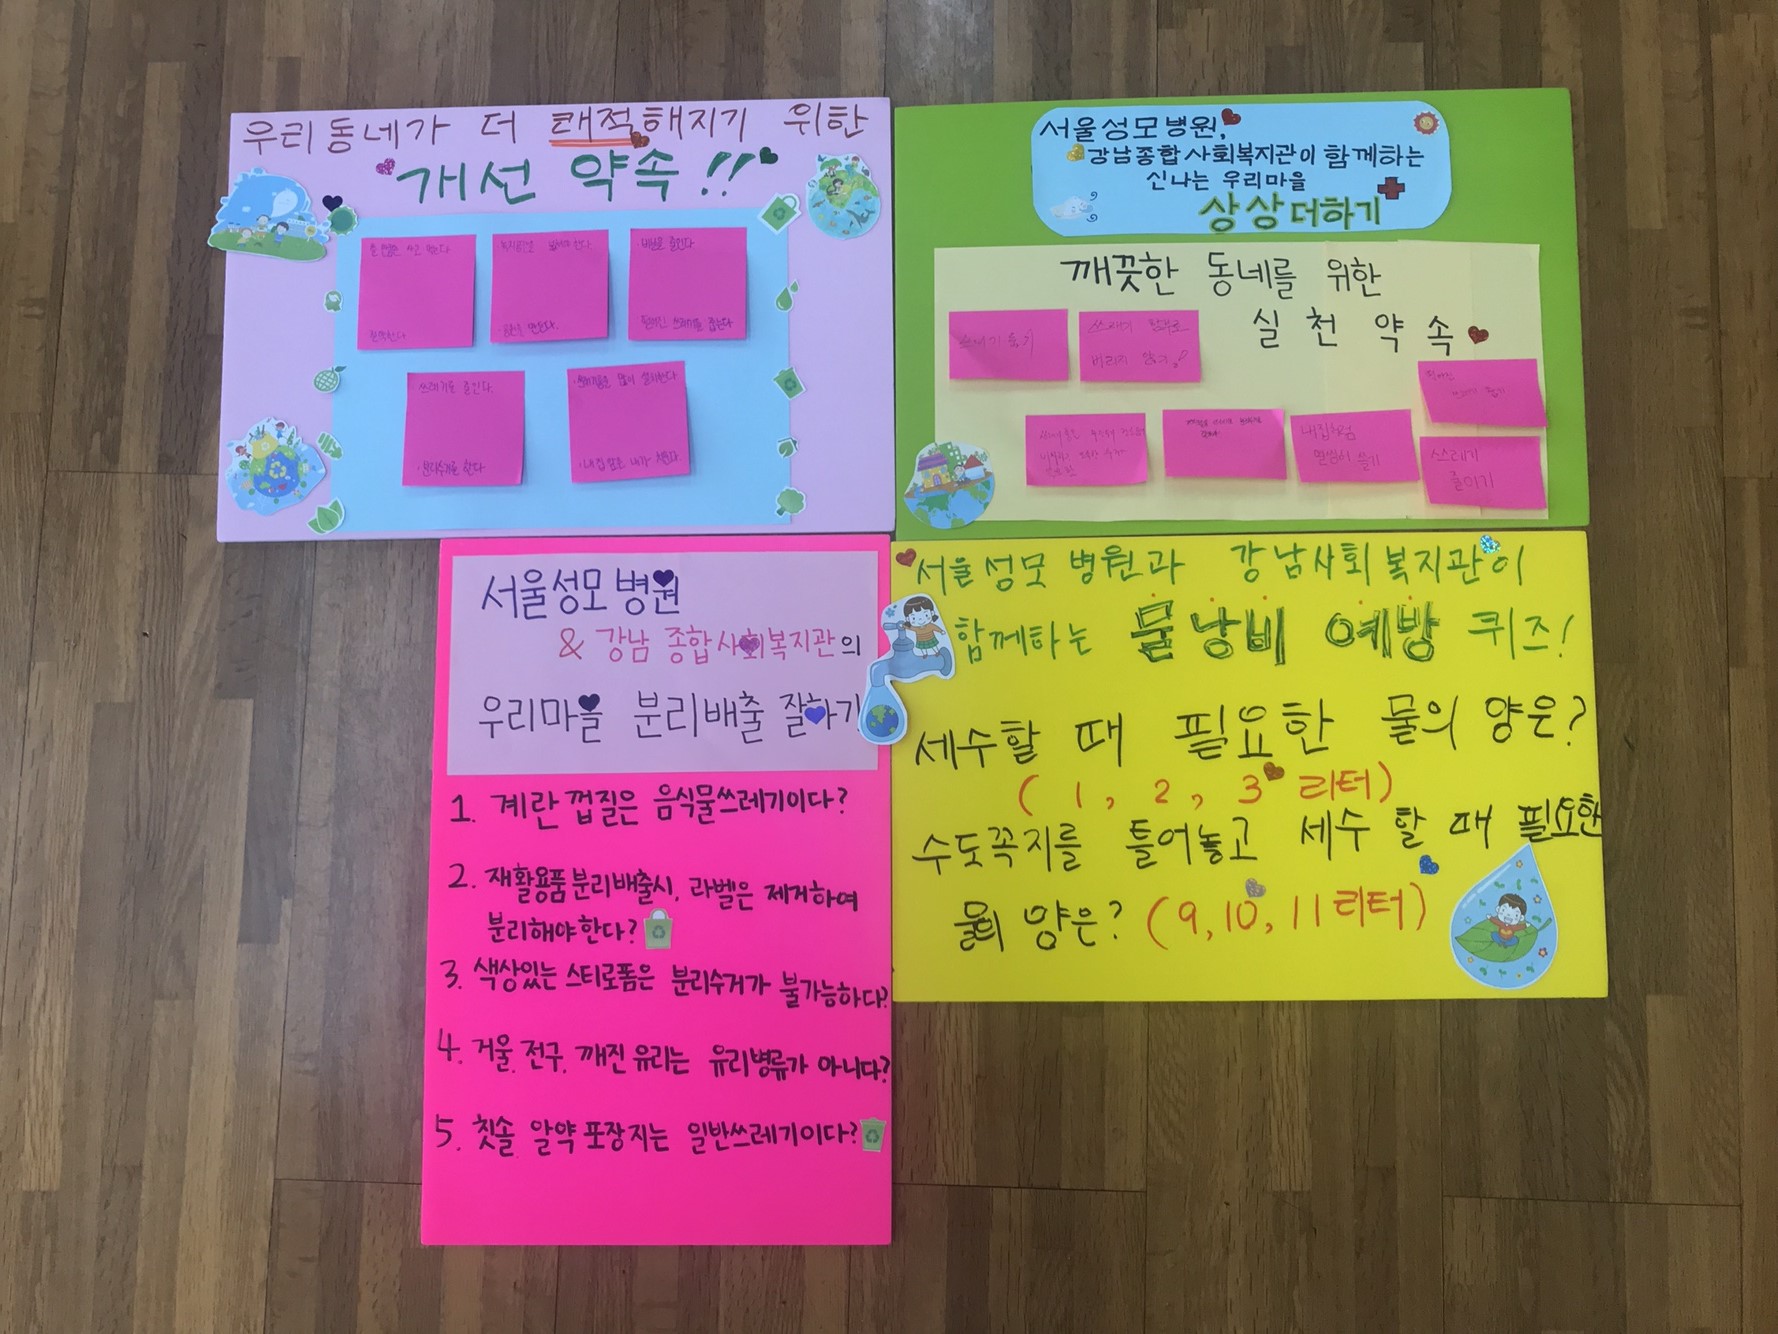 우리동네가 더 쾌적해지기 위한
개선 약속!!
한다.
·비닐을 줄인다
·떨어진 쓰레기를 줍는다
·쓰레기를 줄인다.
·분리수거를 한다
·쓰레기통을 많이 설치한다
·내 집 앞은 내가 치운다
서울성모병원,
강남종합사회복지관이 함께하는
신나는 우리마을
상상더하기
깨끗한 동네를 위한
실천약속
쓰레기 줍기
쓰레기 함부로
버리지 않기!
내집처럼
열심히 쓸기
떨어진
쓰레기 줍기
쓰레기
줄이기
서울성모병원
& 강남 종합사회복지관의
우리마을 분리배출 잘하기
1. 계란 껍질은 음식물쓰레기이다?
2. 재활용품 분리배출시, 라벨은 제거하여
분리해야한다?
3. 색상있는 스티로폼은 분리수거가 불가능하다?
4. 거울, 전구, 깨진 유리는 유리병류가 아니다?
5. 칫솔, 알약 포장지는 일반쓰레기이다?
서울성모 병원과 강남사회복지관이
함께하는 물낭비 예방 퀴즈!
세수할 때 필요한 물의 양은?
(1, 2, 3 리터)
수도꼭지를 틀어놓고 세수 할 때 필요한
물의 양은? (9, 10, 11 리터)